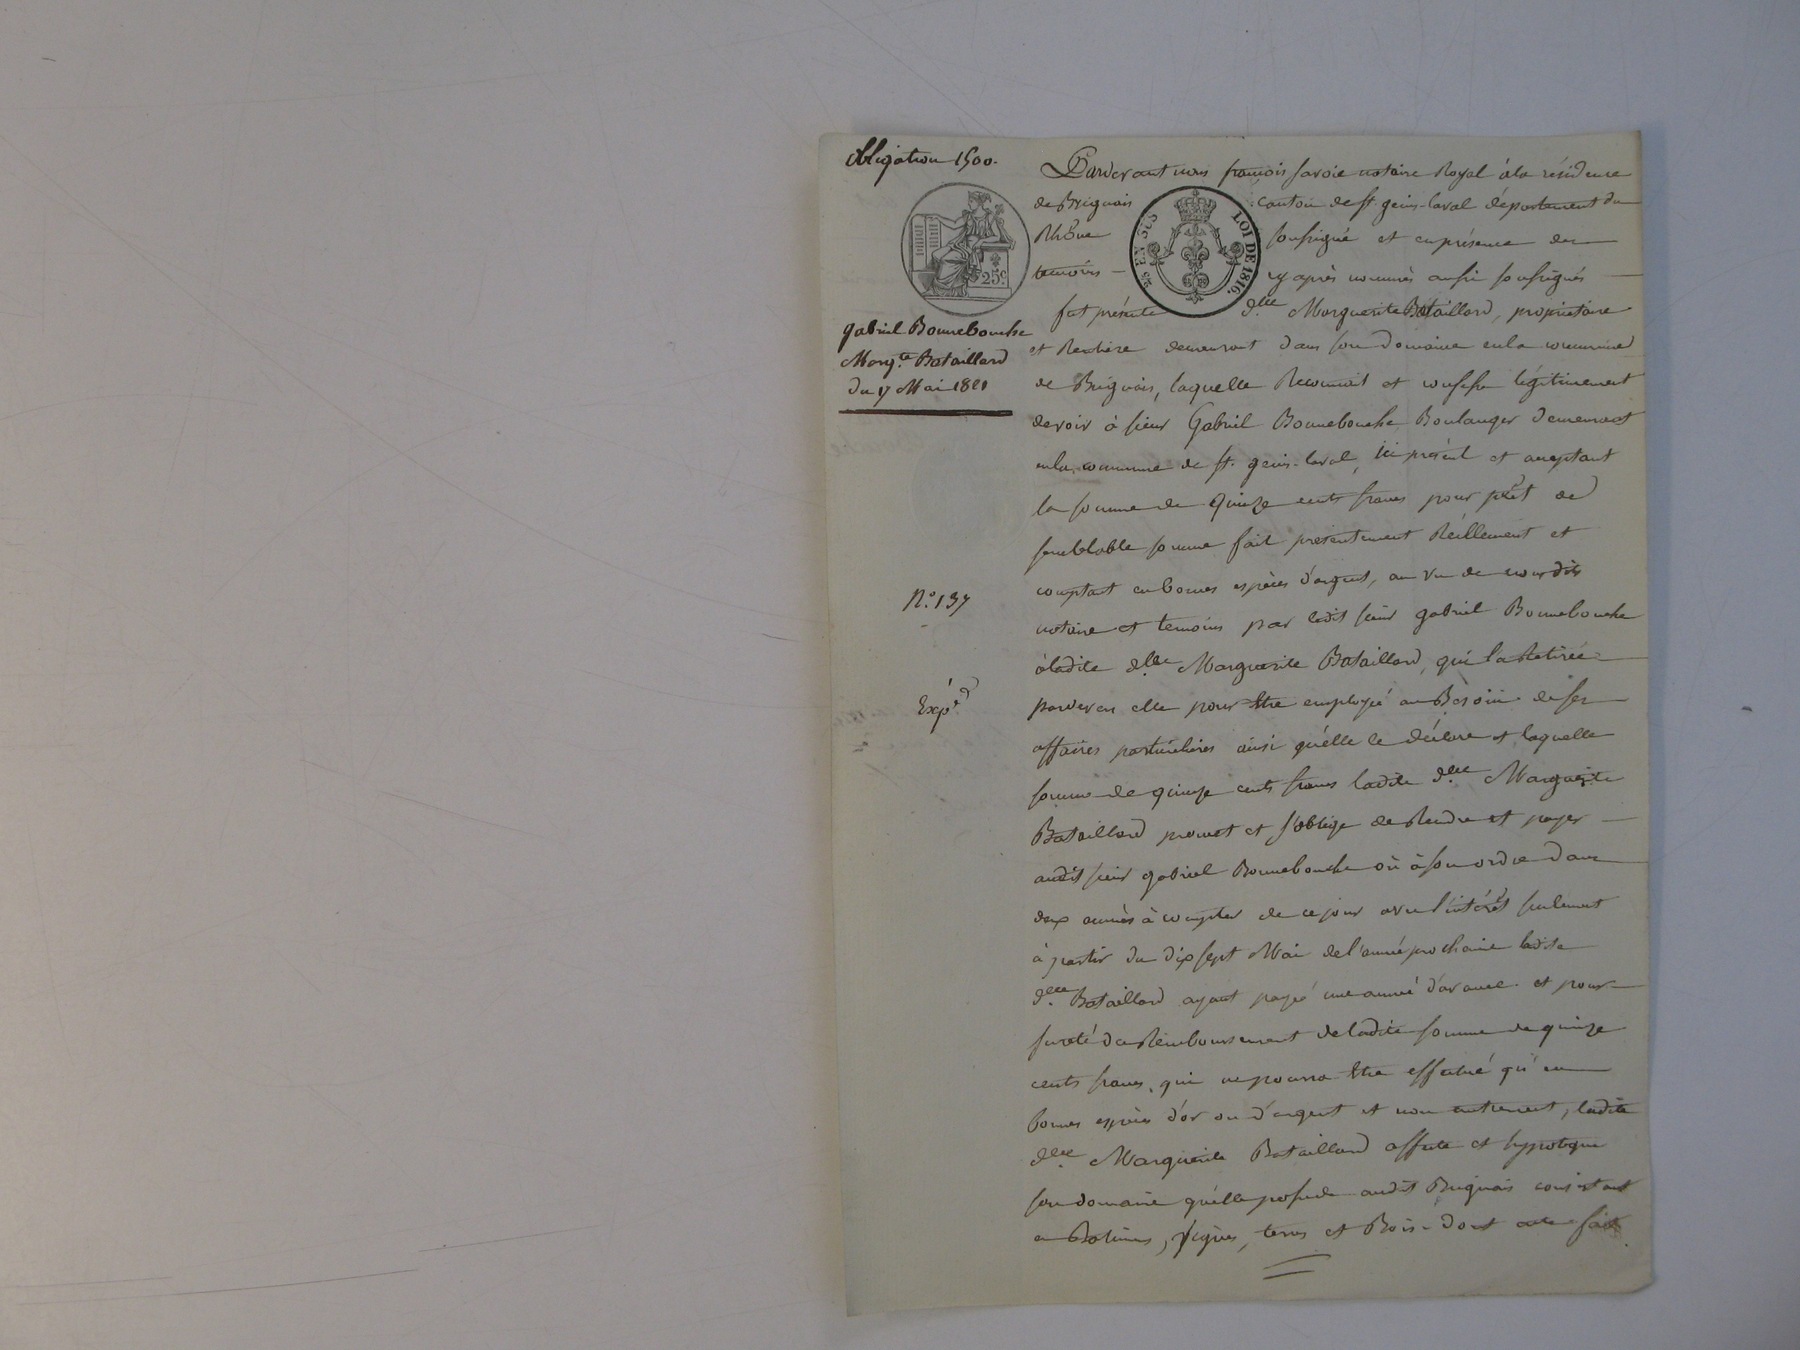 obligation 1500.
25c.
Gabriel Bonnebouche
Margte. Bataillard
du 17 Mai 1821
N.° 137
Expé.
EN SUS LOI DE 1816.
Pardevant nous françois Savoie notaire Royal à la résidence
de Brignais canton de st. genis-laval département du
Rhône soussigné et en présence des
temoins cy après nommés aussi soussignés
fut présente dlle. Marguerite Bataillard, proprietaire
et Rentière demeurant dans son domaine en la commune
de Brignais, laquelle Reconnoit et confesse légitimement
devoir à sieur Gabriel Bonnebouche Boulanger demeurant
en la commune de st. genis-laval, ici présent et acceptant
la somme de quinze cents francs pour prêt de
semblable somme fait presentement Réellement et
comptant en bonnes espèces d'argent, au vu de nousdits
notaire et temoins par ledit sieur gabriel Bonnebouche
à ladite dlle. Marguerite Bataillard, qui l'a Retirée
pardevers elle pour être employé au Besoin de ses
affaires particulières ainsi qu'elle le déclare et laquelle
somme de quinze cents francs ladite dlle. Marguerite
Bataillard promet et s'oblige de Rendre et payer
audit sieur gabriel Bonnebouche où à son ordre dans
deux années à compter de ce jour avec l'intérêt seulement
à partir du dix sept Mai de l'année prochaine ladite
dlle. Bataillard ayant payé une année d'avance. et pour
sureté du Remboursement de ladite somme de quinze
cents francs, qui ne pourra être effectué qu'en
bonnes espèces d'or ou d'argent et non autrement, ladite
dlle. Marguerite Bataillard affecte et hypoteque
son domaine qu'elle possede audit Brignais consistant
en Batimens, vignes, terres et Bois-dont acte fait